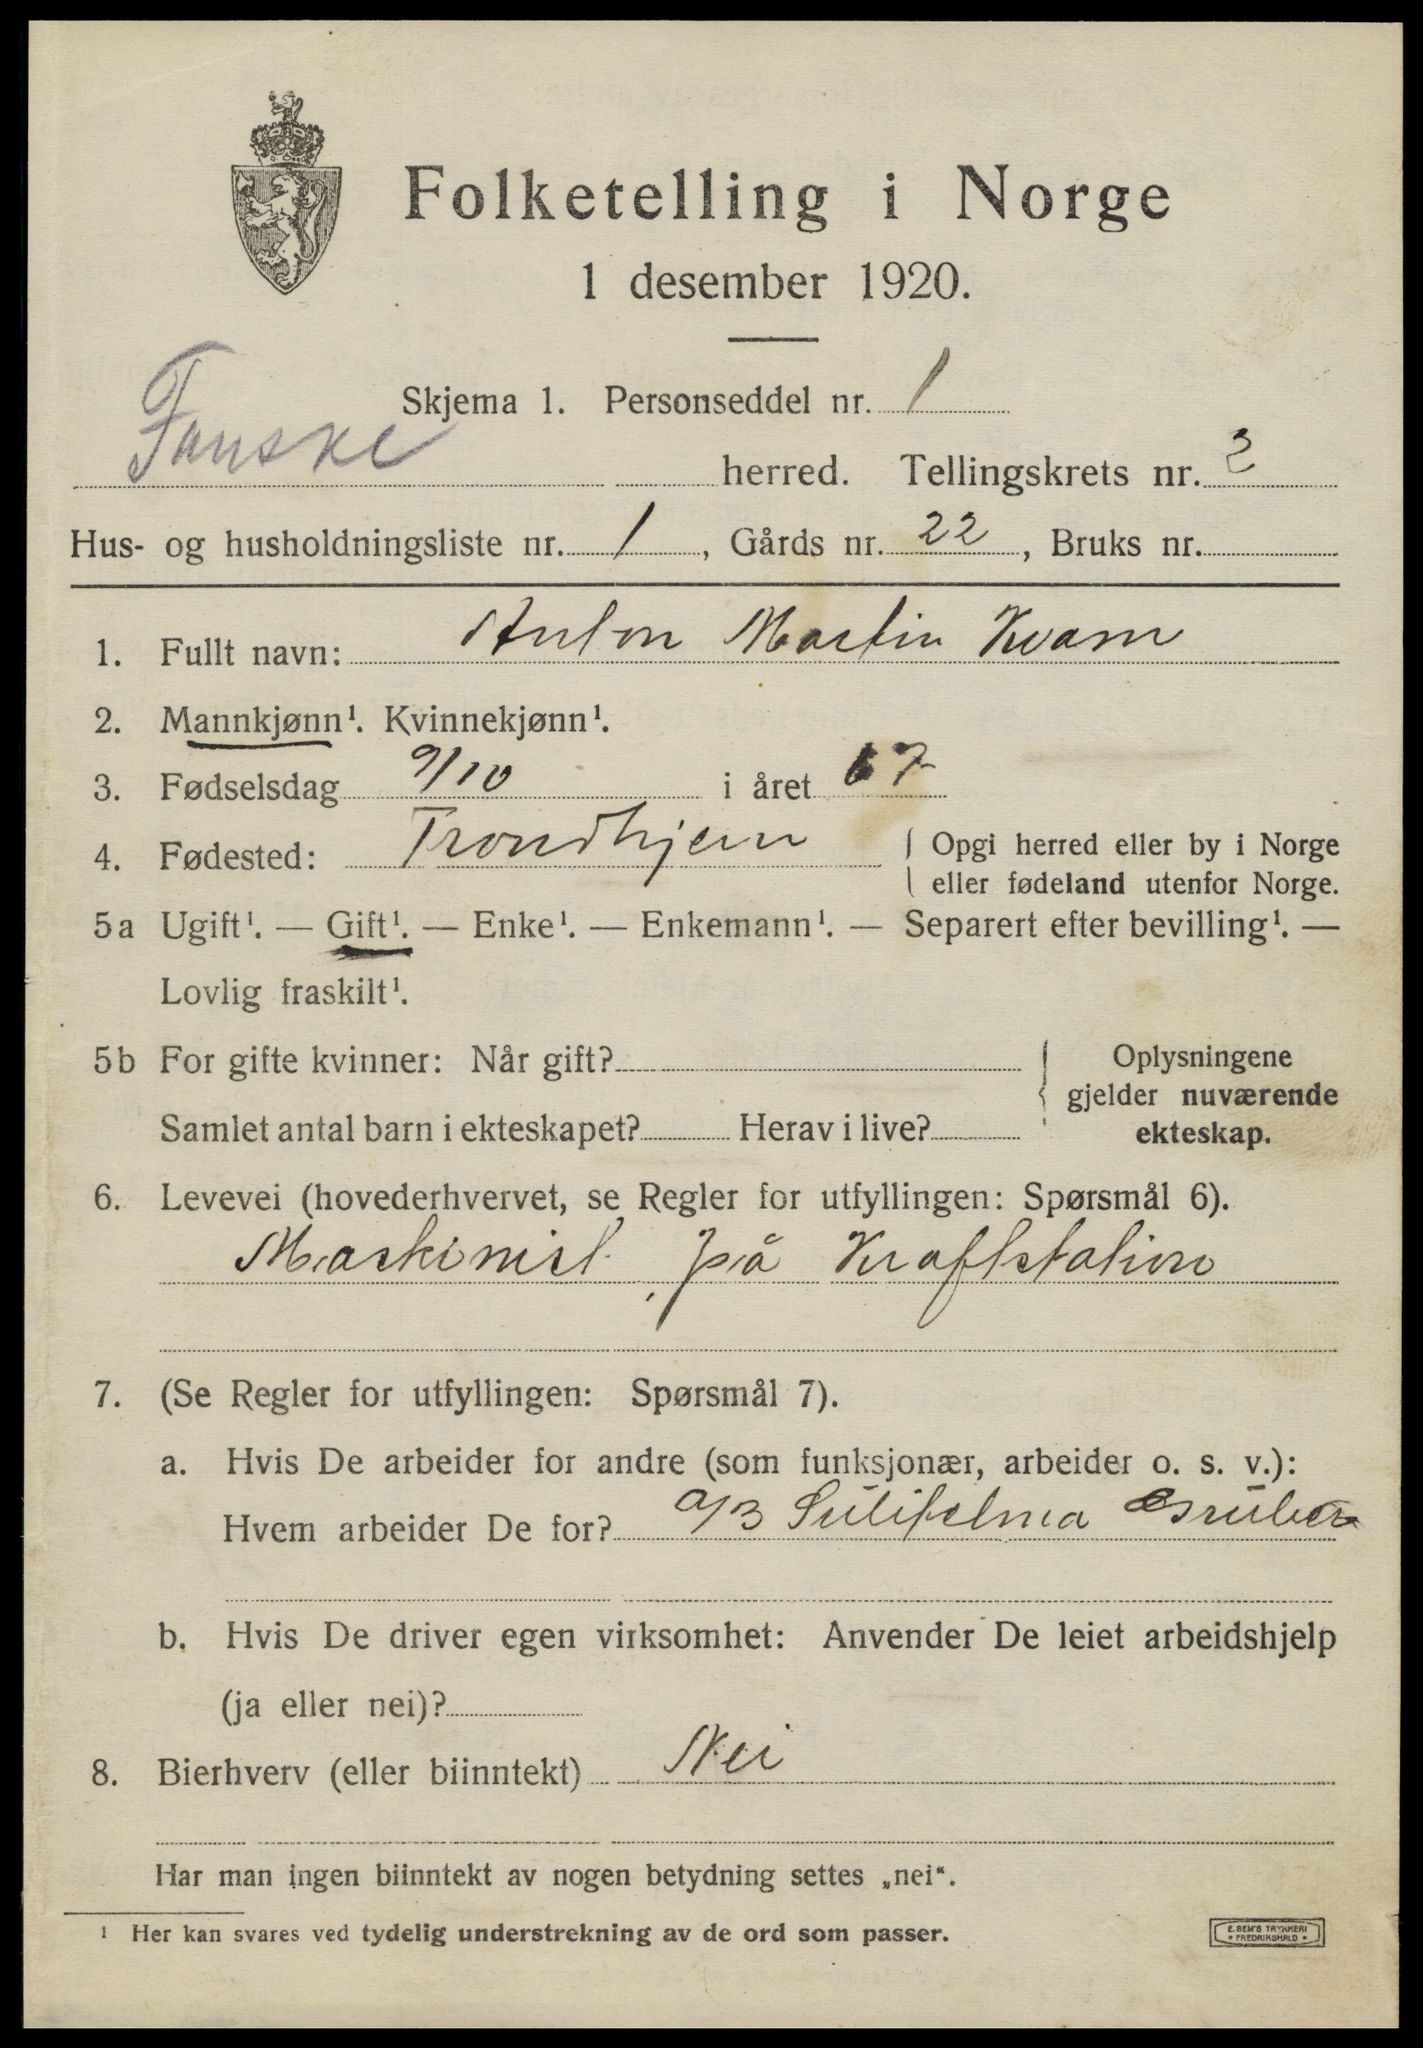 Folketelling i Norge
1 desember 1920.
Skjema 1. Personseddel nr. 1
Fauske herred. Tellingskrets nr. 2
Hus- og husholdningsliste nr. 1, Gårds nr. 22, Bruks nr.
1. Fullt navn: Anton Martin Kvam
2. Mannkjønn¹. Kvinnekjønn¹.
3. Fødselsdag 9/10 i året 67
4. Fødested: Trondhjem { Opgi herred eller by i Norge
eller fødeland utenfor Norge.
5a Ugift¹. — Gift¹. — Enke¹. — Enkemann¹. — Separert efter bevilling¹. —
Lovlig fraskilt¹.
5b For gifte kvinner: Når gift? { Oplysningene
gjelder nuværende
Samlet antal barn i ekteskapet? Herav i live? ekteskap.
6. Levevei (hovederhvervet, se Regler for utfyllingen: Spørsmål 6).
Maskinist på Kraftstation
7. (Se Regler for utfyllingen: Spørsmål 7).
a. Hvis De arbeider for andre (som funksjonær, arbeider o. s. v.):
Hvem arbeider De for? a/B Sulitelma Gruber
b. Hvis De driver egen virksomhet: Anvender De leiet arbeidshjelp
(ja eller nei)?
8. Bierhverv (eller biinntekt) Nei
Har man ingen biinntekt av nogen betydning settes „nei“.
¹ Her kan svares ved tydelig understrekning av de ord som passer.
E. SEM'S TRYKKERI
* FREDRIKSHALD *